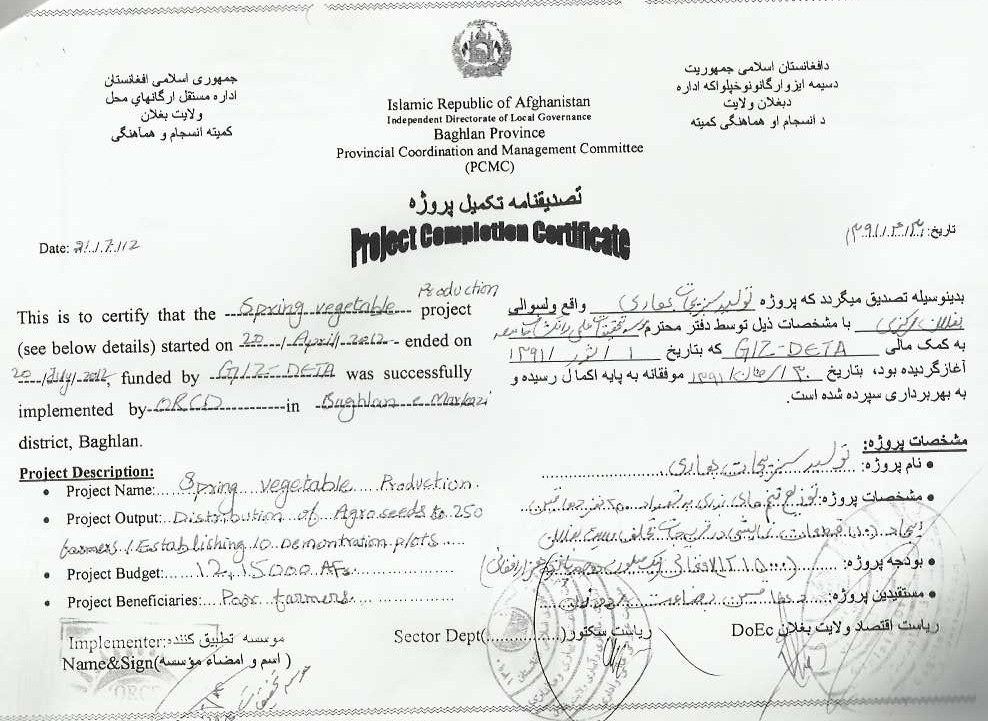 جمهوری اسلامی افغانستان
اداره مستقل ارگانهای محل
ولایت بغلان
کمیته انسجام و هماهنگی
Islamic Republic of Afghanistan
Independent Directorate of Local Governance
Baghlan Province
Provincial Coordination and Management Committee
(PCMC)
دافغانستان اسلامی جمهوریت
دسیمه ایزوارگانونوخپلواکه اداره
دبغلان ولایت
د انسجام او هماهنگی کمیته
تصدیقنامه تکمیل پروژه
Project Completion Certificate
Date: 21/7/12
تاریخ:
This is to certify that the Spring vegetable Production project
(see below details) started on 20/April/2012 - ended on
20/July/2012, funded by GIZ-DETA was successfully
implemented by ORCD in Baghlan e Markazi
district, Baghlan.
بدینوسیله تصدیق میگردند که پروژه تولید سبزیجات بهاری واقع ولسوالی
بغلان مرکزی با مشخصات ذیل توسط دفتر محترم
به کمک مالی GIZ-DETA که بتاریخ ۱ / ثور / ۱۳۹۱
آغازگردیده بود، بتاریخ موفقانه به پایه اکمال رسیده و
به بهربرداری سپرده شده است.
Project Description:
• Project Name: Spring vegetable Production
• Project Output: Distribution of Agro seeds to 250
farmers / Establishing 10 Demontration plots
• Project Budget: 12,15000 AFs
• Project Beneficiaries: Poor farmers
مشخصات پروژه:
• نام پروژه: تولید سبزیجات بهاری
• مشخصات پروژه:
• بودجه پروژه:
• مستفیدین پروژه:
Implementer: موسسه تطبیق کننده
Name&Sign(اسم و امضاء مؤسسه)
Sector Dept(..............) ریاست سکتور
DoEc ریاست اقتصاد ولایت بغلان